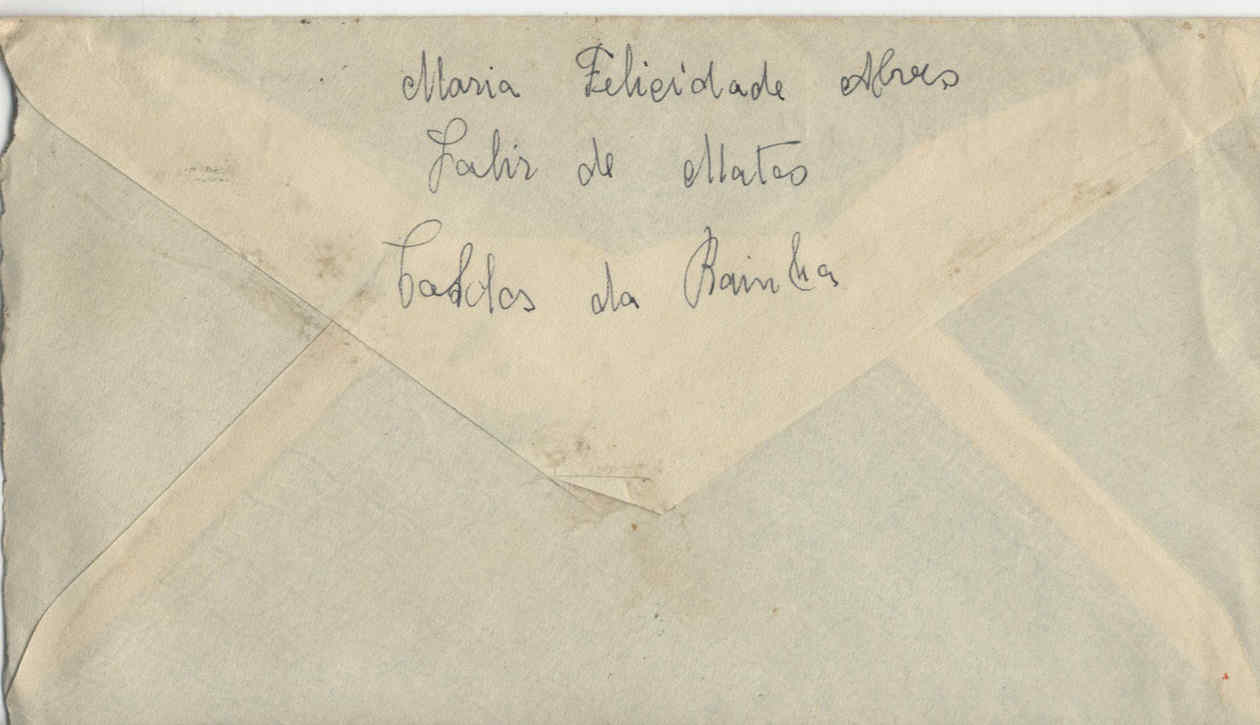 Maria Felicidade Alves
Salir de Matos
Caldas da Rainha